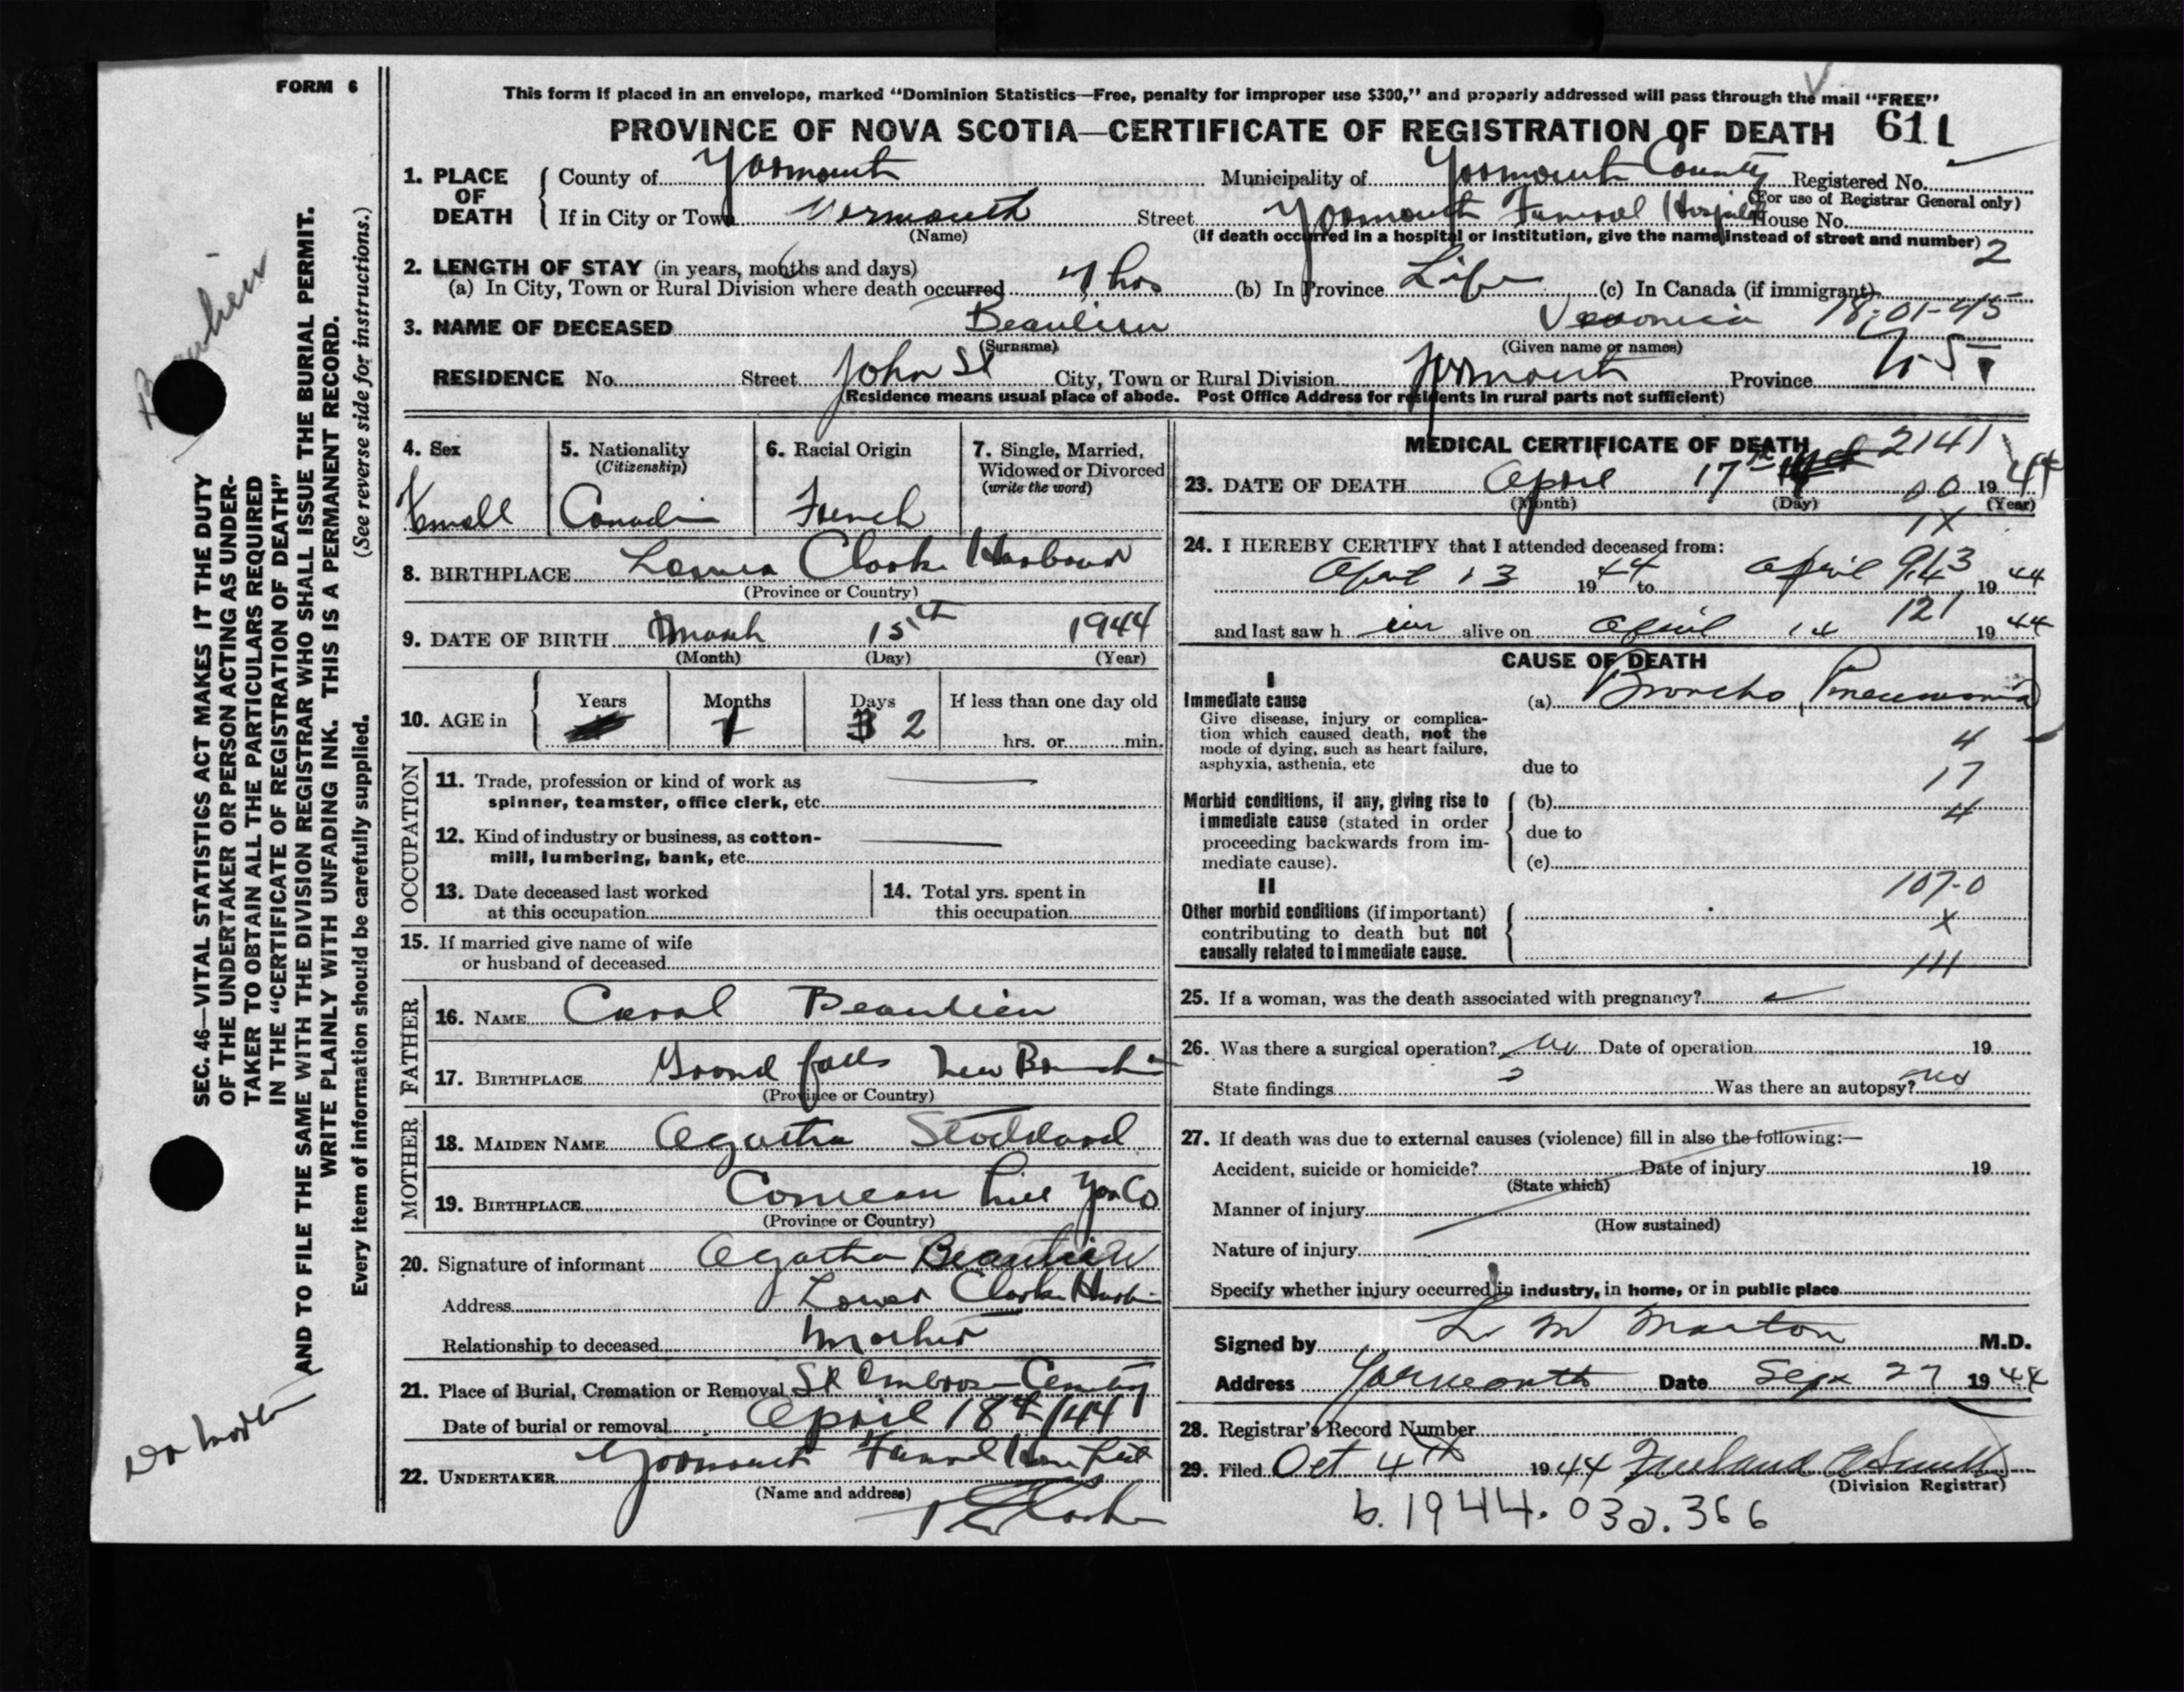 FORM 6
This form if placed in an envelope, marked “Dominion Statistics—Free, penalty for improper use $300,” and properly addressed will pass through the mail “FREE”
PROVINCE OF NOVA SCOTIA—CERTIFICATE OF REGISTRATION OF DEATH 611
1. PLACE OF DEATH County of Yarmouth Municipality of Yarmouth County Registered No.
(For use of Registrar General only)
If in City or Town Yarmouth Street Yarmouth Funeral Hospital House No.
(Name) (If death occurred in a hospital or institution, give the name instead of street and number) 2
2. LENGTH OF STAY (in years, months and days)
(a) In City, Town or Rural Division where death occurred hrs (b) In Province Life (c) In Canada (if immigrant)
3. NAME OF DECEASED Beaulieu Veronica 18-01-45
(Surname) (Given name or names)
RESIDENCE No. Street John St City, Town or Rural Division Yarmouth Province
(Residence means usual place of abode. Post Office Address for residents in rural parts not sufficient)
4. Sex 5. Nationality (Citizenship) 6. Racial Origin 7. Single, Married, Widowed or Divorced (write the word)
Femall Canadi French
8. BIRTHPLACE Lower Clarks Harbour
(Province or Country)
9. DATE OF BIRTH March 15th 1944
(Month) (Day) (Year)
10. AGE in Years Months Days If less than one day old
1 2 hrs. or min.
OCCUPATION
11. Trade, profession or kind of work as
spinner, teamster, office clerk, etc.
12. Kind of industry or business, as cotton-
mill, lumbering, bank, etc.
13. Date deceased last worked
at this occupation
14. Total yrs. spent in
this occupation
15. If married give name of wife
or husband of deceased
FATHER
16. NAME Beaulieu
17. BIRTHPLACE Grand falls New Brunswick
(Province or Country)
MOTHER
18. MAIDEN NAME Agatha Stoddard
19. BIRTHPLACE Comeau Hill Yar Co
(Province or Country)
20. Signature of informant Agatha Beaulieu
Address Lower Clarks Harbour
Relationship to deceased Mother
21. Place of Burial, Cremation or Removal St Ambrose Cemetery
Date of burial or removal April 18th/44
22. UNDERTAKER Yarmouth Funeral Home Ltd
(Name and address)
MEDICAL CERTIFICATE OF DEATH 2141
23. DATE OF DEATH April 17th 00 1944
(Month) (Day) (Year)
1X
24. I HEREBY CERTIFY that I attended deceased from:
April 13 1944 to April 14 1944
913
121
and last saw h alive on April 14 1944
CAUSE OF DEATH
I
Immediate cause (a) Broncho Pneumonia
Give disease, injury or complica-
tion which caused death, not the
mode of dying, such as heart failure,
asphyxia, asthenia, etc
due to
4
17
4
Morbid conditions, if any, giving rise to
immediate cause (stated in order
proceeding backwards from im-
mediate cause).
(b)
due to
(c)
107-0
X
111
II
Other morbid conditions (if important)
contributing to death but not
causally related to immediate cause.
25. If a woman, was the death associated with pregnancy?
26. Was there a surgical operation? No Date of operation 19
State findings Was there an autopsy? no
27. If death was due to external causes (violence) fill in also the following:—
Accident, suicide or homicide? Date of injury 19
(State which)
Manner of injury
(How sustained)
Nature of injury
Specify whether injury occurred in industry, in home, or in public place
Signed by L M Morton M.D.
Address Yarmouth Date Sept 27 1944
28. Registrar's Record Number
29. Filed Oct 4th 1944
(Division Registrar)
b. 1944. 032. 366
SEC. 46—VITAL STATISTICS ACT MAKES IT THE DUTY
OF THE UNDERTAKER OR PERSON ACTING AS UNDER-
TAKER TO OBTAIN ALL THE PARTICULARS REQUIRED
IN THE “CERTIFICATE OF REGISTRATION OF DEATH”
AND TO FILE THE SAME WITH THE DIVISION REGISTRAR WHO SHALL ISSUE THE BURIAL PERMIT.
WRITE PLAINLY WITH UNFADING INK. THIS IS A PERMANENT RECORD.
Every item of information should be carefully supplied. (See reverse side for instructions.)